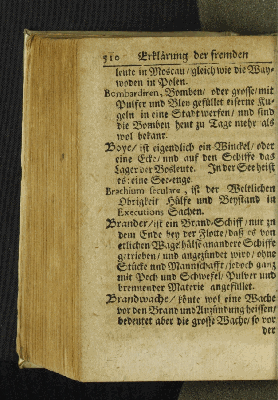 510 Erklärung der fremden
leute in Moscau/ gleich wie die Way-
woden in Polen.
Bombardiren, Bomben/ oder grosse/ mit
Pulfer und Bley gefüllet eiserne Ku-
geln in eine Stadt werfen/ und sind
die Bomben heut zu Tage mehr als
wol bekant.
Boye/ ist eigentlich ein Winckel/ oder
eine Eck/ und auf den Schiffe das
Lager der Bosleute. In der See heist
es: eine See-enge.
Brachium seculare, ist der Weltlichen
Obrigkeit Hülfe und Beystand in
Executions Sachen.
Brander/ ist ein Brand-Schiff/ nur zu
dem Ende bey der Flotte/ daß es von
etlichen Wagehälse an andere Schiffe
getrieben/ und angezündet wird/ ohne
Stücke und Mannschafft/ jedoch gantz
mit Pech und Schwefel/ Pulver und
brennender Materie angefüllet.
Brandwache/ könte wol eine Wache
vor den Brand und Anzündung heissen/
bedeutet aber die grosse Wache/ so vor
der